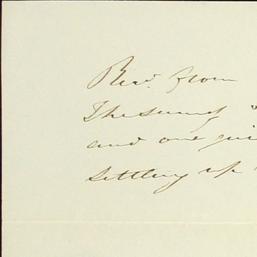 Recd. from
The sum of "
and one
settling up